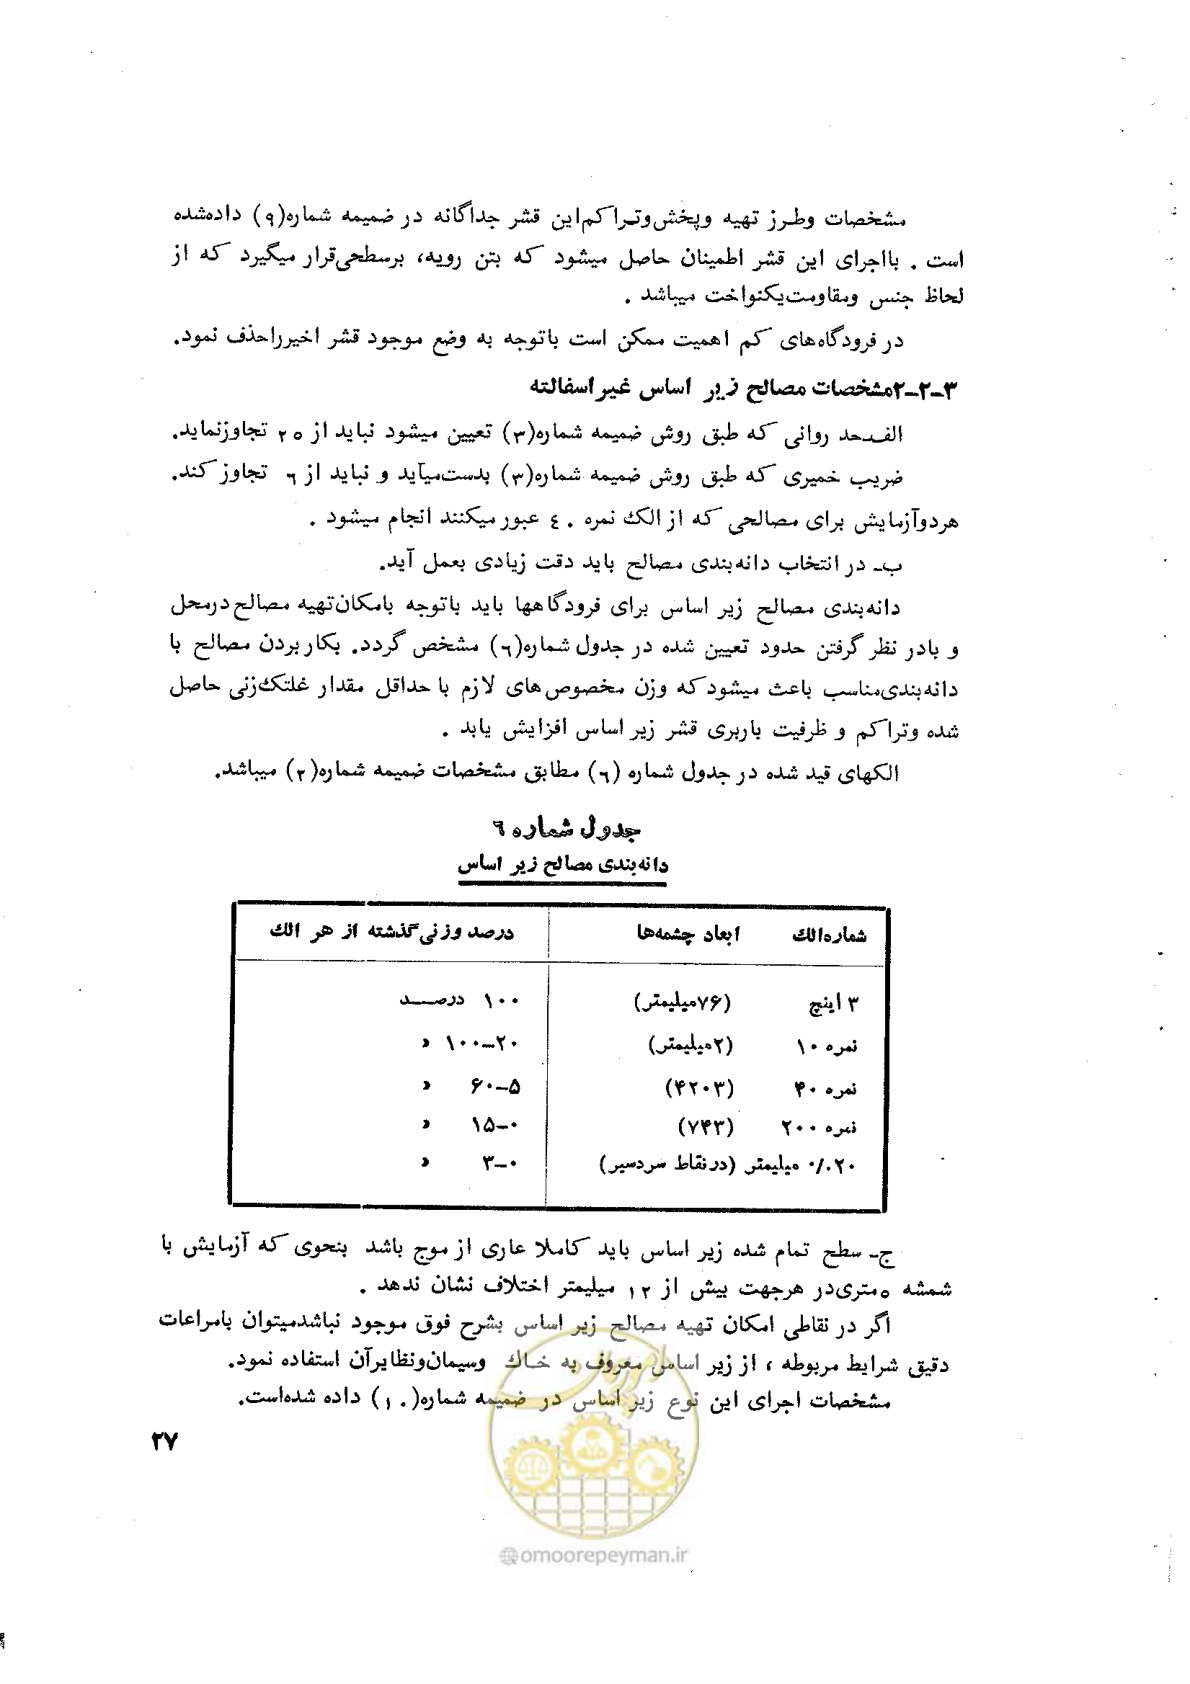 مشخصات وطرز تهیه وپخش‌وتراکم‌این قشر جداگانه در ضمیمه شماره(۹) داده‌شده
است . بااجرای این قشر اطمینان حاصل میشود که بتن رویه، برسطحی‌قرار میگیرد که از
لحاظ جنس ومقاومت‌یکنواخت میباشد .
در فرودگاه‌های کم اهمیت ممکن است باتوجه به وضع موجود قشر اخیرراحذف نمود.
۳ـ۲ـ۲مشخصات مصالح زیر اساس غیراسفالته
الف‌ـحد روانی که طبق روش ضمیمه شماره(۳) تعیین میشود نباید از ۲۵ تجاوزنماید.
ضریب خمیری که طبق روش ضمیمه شماره(۳) بدست‌میآید و نباید از ۶ تجاوز کند.
هردوآزمایش برای مصالحی که از الک نمره ۴۰ عبور میکنند انجام میشود .
ب‌ـ در انتخاب دانه‌بندی مصالح باید دقت زیادی بعمل آید.
دانه‌بندی مصالح زیر اساس برای فرودگاهها باید باتوجه بامکان‌تهیه مصالح درمحل
و بادر نظر گرفتن حدود تعیین شده در جدول شماره(۶) مشخص گردد. بکار بردن مصالح با
دانه‌بندی‌مناسب باعث میشودکه وزن مخصوص‌های لازم با حداقل مقدار غلتک‌زنی حاصل
شده وتراکم و ظرفیت باربری قشر زیر اساس افزایش یابد .
الکهای قید شده در جدول شماره (۶) مطابق مشخصات ضمیمه شماره(۲) میباشد.
جدول شماره ۶
دانه‌بندی مصالح زیر اساس
شماره‌الک ابعاد چشمه‌ها درصد وزنی‌گذشته از هر الک
۳ اینچ (۷۶میلیمتر) ۱۰۰ درصــد
نمره ۱۰ (۲میلیمتر) ۲۰ــ۱۰۰ «
نمره ۴۰ (۴۲۰۳) ۵ــ۶۰ «
نمره ۲۰۰ (۷۴۳) ۰ــ۱۵ «
۰/.۲۰ میلیمتر (درنقاط سردسیر) ۰ــ۳ «
ج‌ـ سطح تمام شده زیر اساس باید کاملا عاری از موج باشد بنحوی که آزمایش با
شمشه ۵متری‌در هرجهت بیش از ۱۲ میلیمتر اختلاف نشان ندهد .
اگر در نقاطی امکان تهیه مصالح زیر اساس بشرح فوق موجود نباشدمیتوان بامراعات
دقیق شرایط مربوطه ، از زیر اساس معروف به خـاک وسیمان‌ونظایرآن استفاده نمود.
مشخصات اجرای این نوع زیر اساس در ضمیمه شماره(۱۰) داده شده‌است.
۲۷
@omoorepeyman.ir